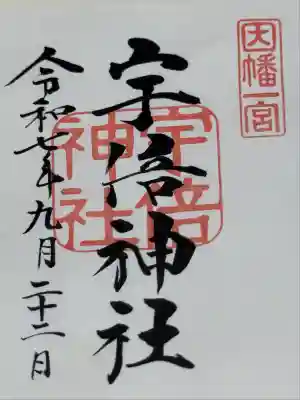 因幡一宮
宇倍神社
宇倍神社
令和七年九月二十二日